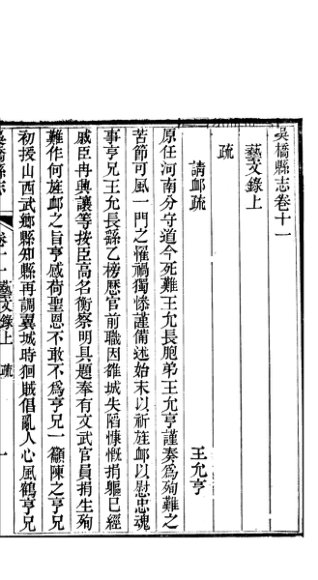 吳橋縣志卷十一
藝文錄上
疏
請䘏疏
王允亨
原任河南分守道今死難王允長胞弟王允亨謹奏爲殉難之
苦節可風一門之罹禍獨慘謹備述始末以祈旌䘏以慰忠魂
事亨兄王允長繇乙榜歷官前職因雒城失陷慷慨捐軀已經
戚臣冉興讓等按臣高名衡察明具題奉有文武官員捐生殉
難作何旌䘏之旨亨感荷聖恩不敢不爲亨兄一籲陳之亨兄
初授山西武鄉縣知縣再調翼城時狥賊倡亂人心風鶴亨兄
吳橋縣志
卷十一
藝文錄上
疏
一